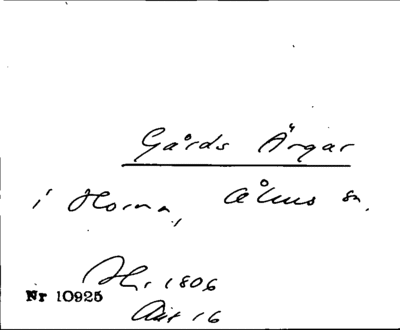 Gårds Ärgar
i Horna, Åhus sn.
Hr. 1806
Nr 10925
Akt 16